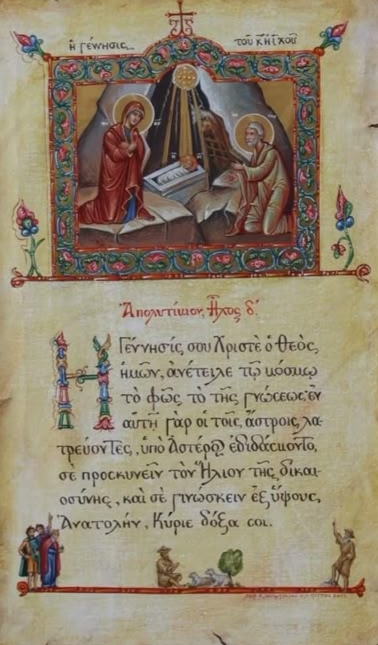 ἡ Γέννησις τοῦ
Ἀπολυτίκιον, Ἦχος δ΄
Ἡ Γέννησίς σου Χριστὲ ὁ Θεὸς,
ἡμῶν, ἀνέτειλε τῷ κόσμῳ
τὸ φῶς τὸ τῆς γνώσεως· ἐν
αὐτῇ γὰρ οἱ τοῖς ἄστροις, λα-
τρεύοντες, ὑπὸ Ἀστέρος ἐδιδάσκοντο,
σὲ προσκυνεῖν τὸν Ἥλιον τῆς δικαι-
οσύνης, καὶ σὲ γινώσκειν ἐξ ὕψους,
Ἀνατολήν, Κύριε δόξα σοι.